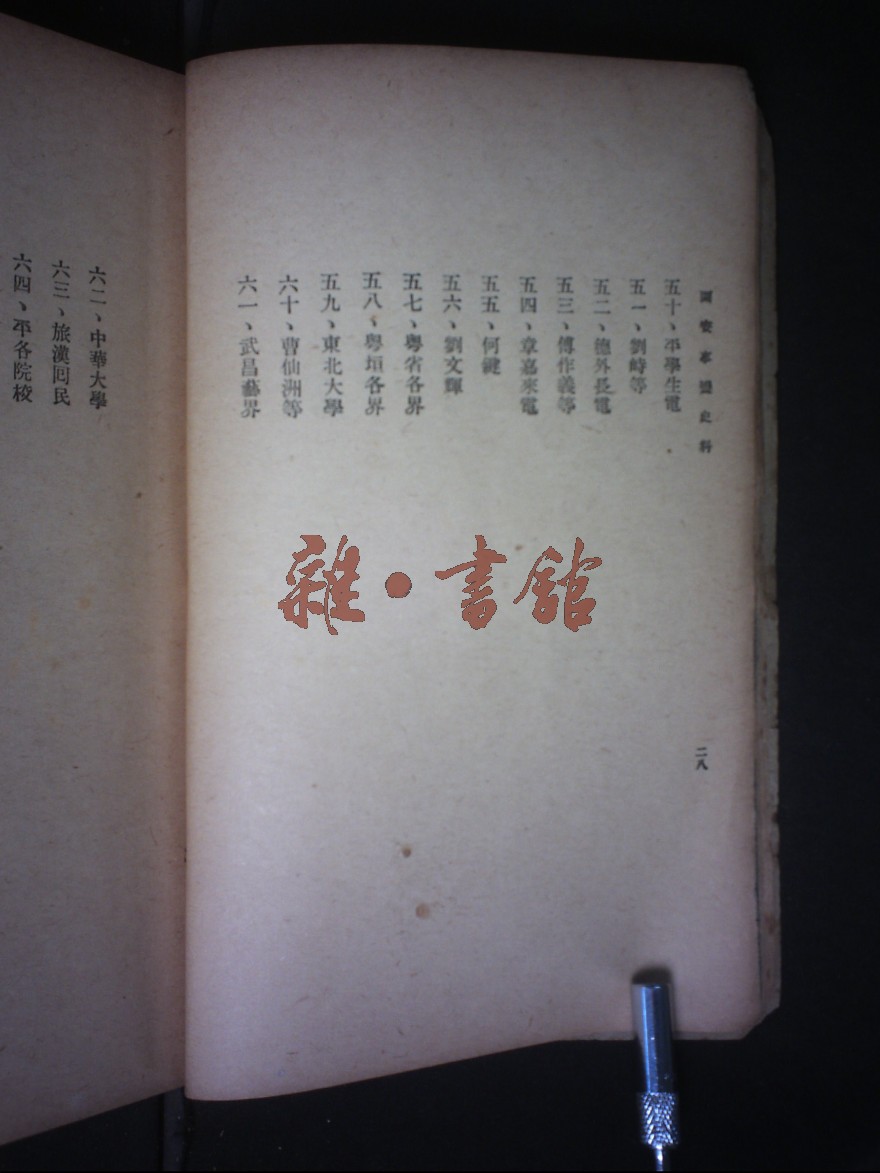 西安事變史料
五十、平學生電
五一、劉峙等
五二、德外長電
五三、傅作義等
五四、章嘉來電
五五、何鍵
五六、劉文輝
五七、粵省各界
五八、粵垣各界
五九、東北大學
六十、曹仙洲等
六一、武昌藝界
二八
六二、中華大學
六三、旅漢回民
六四、平各院校
雜·書館